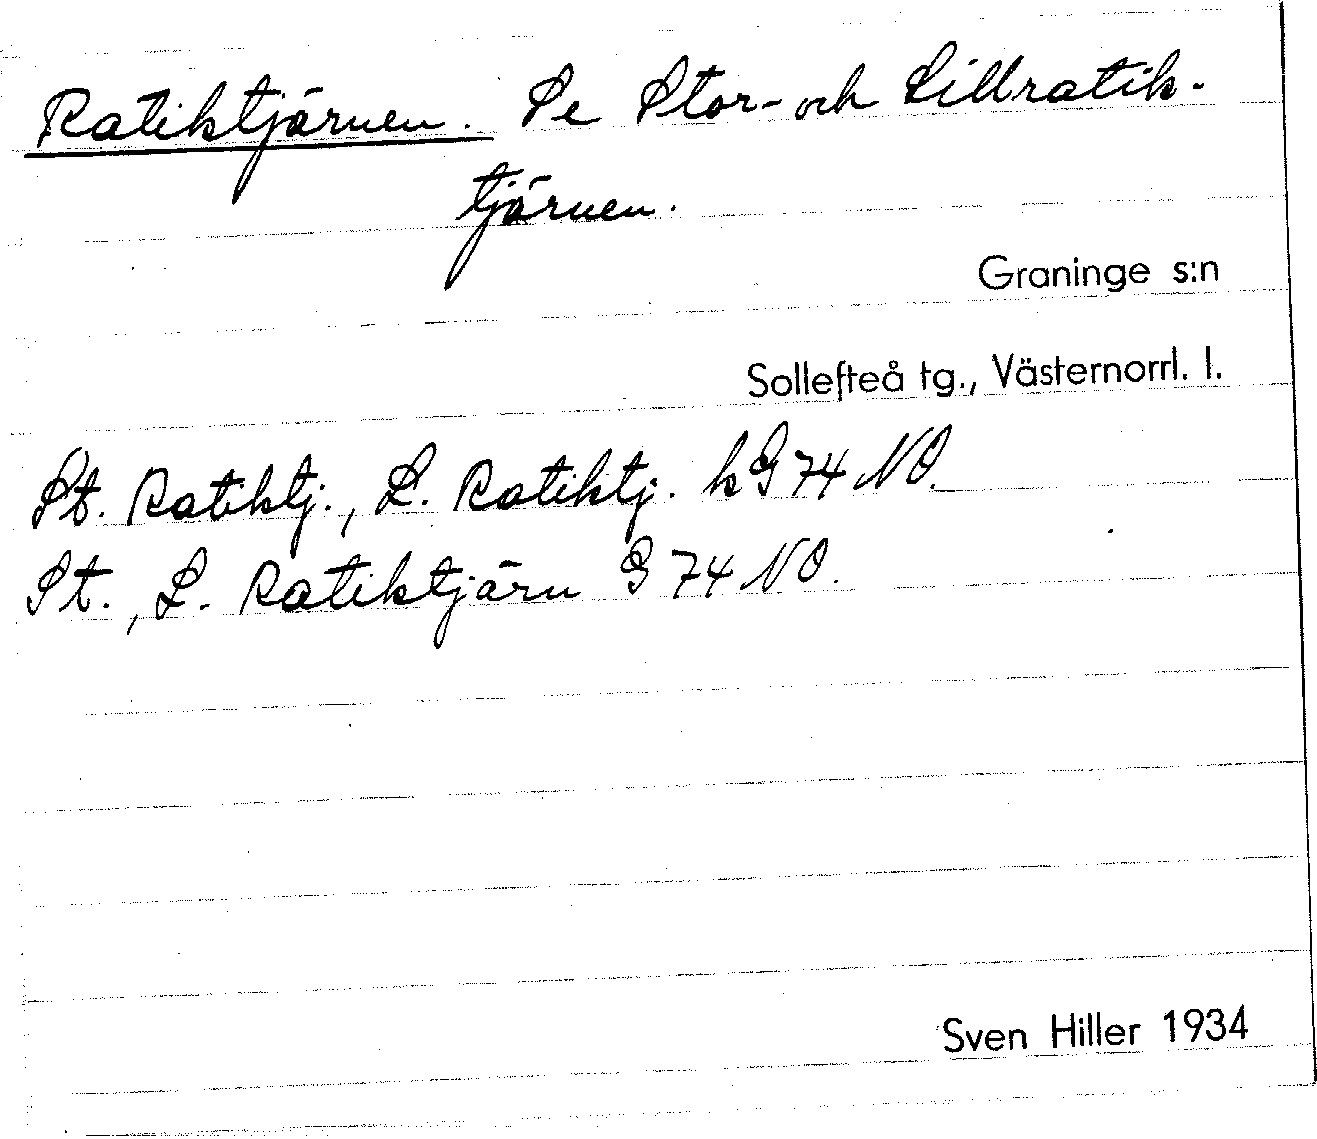 Ratiktjärnen. Se Stor- och Lillratik-
tjärnen.
Graninge s:n
Sollefteå tg., Västernorrl. l.
St. Ratiktj., L. Ratiktj. kG 74 NO.
St., L. Ratiktjärn G 74 NO.
Sven Hiller 1934